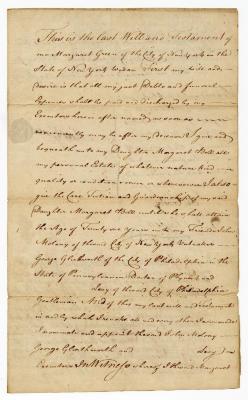 This is the Last Will and Testament of
me Margaret Green of the City of New York in the
State of New York Widow First my Will and
desire is that all my just Debts and funeral
Expences shall be paid and discharged by my
Executors herein after named as soon as
conveniently may be after my decease I give and
bequeath unto my Daughter Margaret Ball all
my personal Estate of whatever nature kind
quality or condition soever or wheresoever I also
give the Care Tuition and Guardianship of my said
Daughter Margaret Ball until she shall attain
the Age of Twenty one years unto my Friends John
of the said City of New York
George of the City of Philadelphia in the
State of Pennsylvania Doctor of Physic and
Levy of the said City of Philadelphia
Gentleman And of this my last Will and Testament
in and by which I revoke all and every other I
nominate and appoint the said John
George and Levy
Executors In Witness whereof I the said Margaret